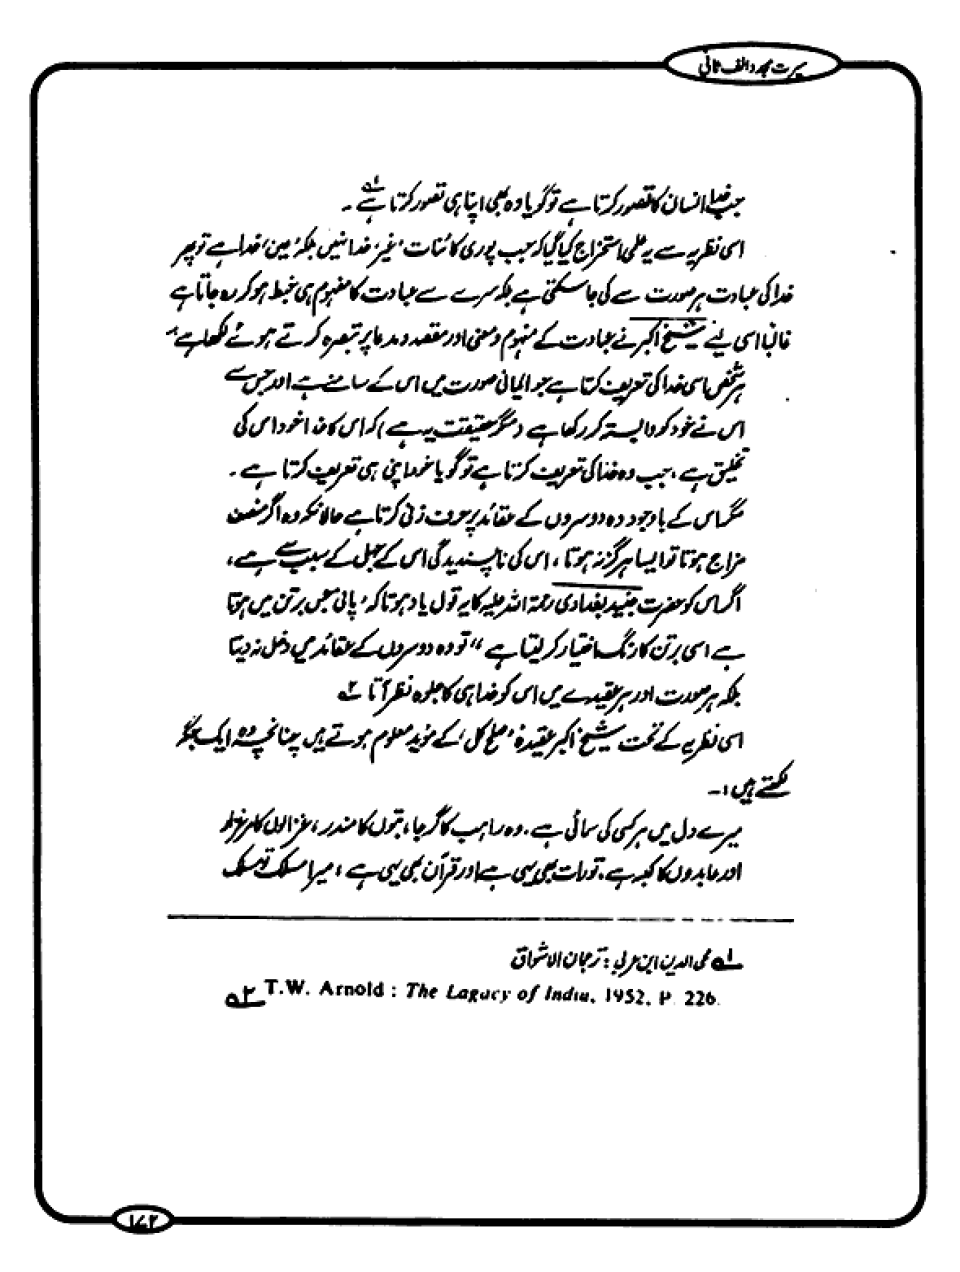 سیرت مجدد الف ثانی
جب خدا انسان کا تصور کرتا ہے تو گویا وہ بھی اپنا ہی تصور کرتا ہے ۱؎ ۔
اسی نظریہ سے یہ علمی استخراج کیا گیا کہ جب پوری کائنات ’غیر‘ خدا نہیں بلکہ ’عین‘ خدا ہے تو پھر
خدا کی عبادت ہر صورت سے کی جا سکتی ہے بلکہ سرے سے عبادت کا مفہوم ہی خبط ہو کر رہ جاتا ہے
غالباً اسی لیے شیخ اکبر نے عبادت کے مفہوم و معنی اور مقصد و مدعا پر تبصرہ کرتے ہوئے لکھا ہے :
ہر شخص اسی خدا کی تعریف کرتا ہے جو ایمانی صورت میں اس کے سامنے ہے اور جس سے
اس نے خود کو وابستہ کر رکھا ہے (مگر حقیقت یہ ہے) کہ اس کا خدا خود اس کی
تخلیق ہے، جب وہ خدا کی تعریف کرتا ہے تو گویا خود اپنی ہی تعریف کرتا ہے ۔
مگر اس کے باوجود وہ دوسروں کے عقائد پر حرف زنی کرتا ہے حالانکہ وہ اگر منصف
مزاج ہوتا تو ایسا ہرگز نہ ہوتا، اس کی ناپسندیدگی اس کے جہل کے سبب سے ہے،
اگر اس کو حضرت جنید بغدادی رحمۃ اللہ علیہ کا یہ قول یاد ہوتا کہ ’’پانی جس برتن میں ہوتا
ہے اسی برتن کا رنگ اختیار کر لیتا ہے‘‘ تو وہ دوسروں کے عقائد میں دخل نہ دیتا
بلکہ ہر صورت اور ہر عقیدے میں اس کو خدا ہی کا جلوہ نظر آتا ۲؎
اسی نظریہ کے تحت شیخ اکبر عقیدۂ ’صلح کل‘ کے موید معلوم ہوتے ہیں چنانچہ وہ ایک جگہ
لکھتے ہیں :۔
میرے دل میں ہر کسی کی سمائی ہے، وہ راہب کا گرجا، بتوں کا مندر، غزالوں کا مرغزار
اور عابدوں کا کعبہ ہے، تورات بھی یہی ہے اور قرآن بھی یہی ہے، میرا مسلک تو مسلک
۱؎ محی الدین ابن عربی : ترجمان الاشواق
۲؎ T.W. Arnold : The Lagacy of India, 1952, P. 226.
۱۷۲